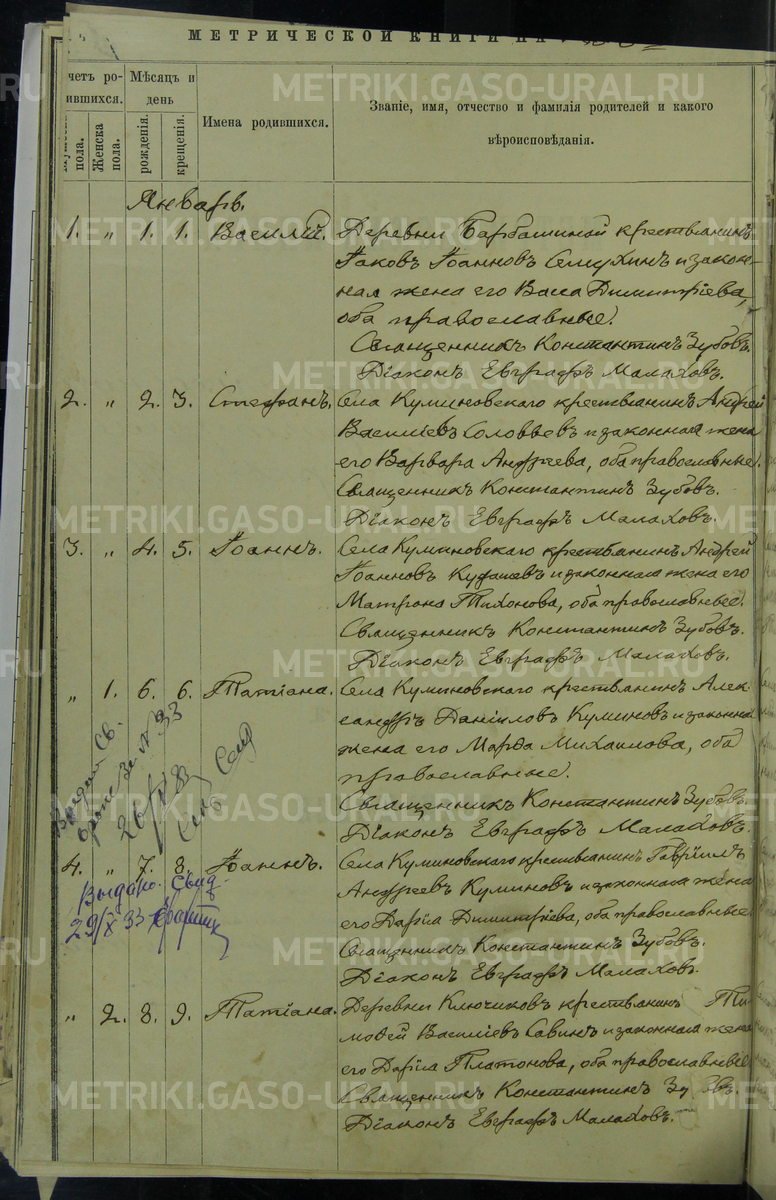 МЕТРИЧЕСКОЙ КНИГИ НА
четъ ро-
ившихся.
Мѣсяцъ и
день
пола.
Женска
пола.
рожденія.
крещенія.
Имена родившихся.
Званіе, имя, отчество и фамилія родителей и какого
вѣроисповѣданія.
Январь.
1. " 1. 1. Василій. Деревни Барбашиной крестьянинъ
Іаковъ Іоанновъ Семухинъ и закон-
ная жена его Васса Димитріева,
оба православные.
Священникъ Константинъ Зубовъ.
Діаконъ Евграфъ Малаховъ.
2. " 2. 3. Стефанъ. Села Куминовскаго крестьянинъ Андрей
Василіевъ Соловьевъ и законная жена
его Варвара Андреева, оба православные.
Священникъ Константинъ Зубовъ.
Діаконъ Евграфъ Малаховъ.
3. " 4. 5. Іоаннъ. Села Куминовскаго крестьянинъ Андрей
Іоанновъ и законная жена его
Матрона Тихонова, оба православные.
Священникъ Константинъ Зубовъ.
Діаконъ Евграфъ Малаховъ.
" 1. 6. 6. Татіана. Села Куминовскаго крестьянинъ Алек-
сандръ Даніиловъ Куминовъ и законная
жена его Марѳа Михаилова, оба
православные.
Священникъ Константинъ Зубовъ.
Діаконъ Евграфъ Малаховъ.
4. " 7. 8. Іоаннъ. Села Куминовскаго крестьянинъ Гавріилъ
Андреевъ Куминовъ и законная жена
его Дарія Димитріева, оба православные
Священникъ Константинъ Зубовъ.
Діаконъ Евграфъ Малаховъ.
" 2. 8. 9. Татіана. Деревни Ключиковъ крестьянинъ Ти-
моѳей Василіевъ Савинъ и законная жена
его Дарія Платонова, оба православные
Священникъ Константинъ Зу овъ.
Діаконъ Евграфъ Малаховъ.
Выдано Св.
за № 33
Выдано Свид.
29/X 33
METRIKI.GASO-URAL.RU